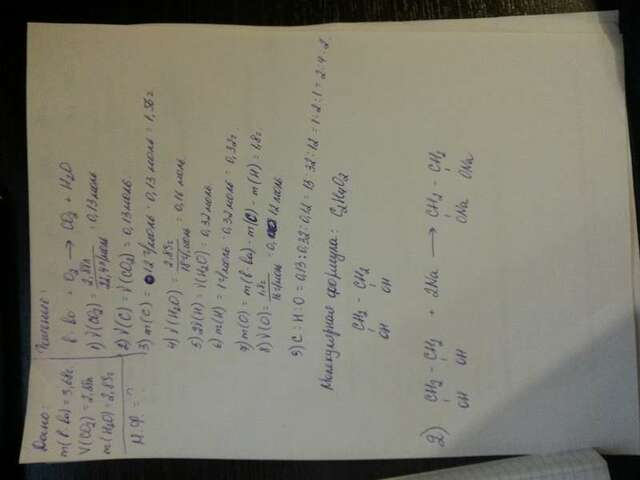 Дано:
m(в-ва) = 3,68г
V(CO₂) = 2,88л
m(H₂O) = 2,85г
М.Ф. = ?
Решение:
в-во + O₂ → CO₂ + H₂O
1) ν(CO₂) = 2,88л / 22,4л/моль = 0,13 моль
2) ν(C) = ν(CO₂) = 0,13 моль.
3) m(C) = 12 г/моль · 0,13 моль = 1,56г
4) ν(H₂O) = 2,85г / 18г/моль = 0,16 моль
5) 2ν(H) = ν(H₂O) = 0,32 моль.
6) m(H) = 1г/моль · 0,32 моль = 0,32г
7) m(O) = m(в-ва) - m(C) - m(H) = 1,8г.
8) ν(O) = 1,8г / 16г/моль = 0,12 моль.
9) C : H : O = 0,13 : 0,32 : 0,12 = 13 : 32 : 12 = 1 : 2 : 1 = 2 : 4 : 2
Молекулярная формула: C₂H₄O₂
CH₂ - CH₂
OH OH
2) CH₂ - CH₂ + 2Na → CH₂ - CH₂
OH OH ONa ONa